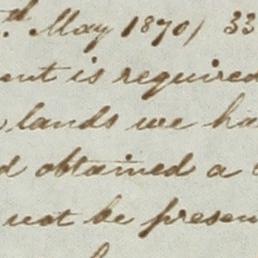 th May 1870, 33
ent is required
lands we ha
d obtained a
not be presen